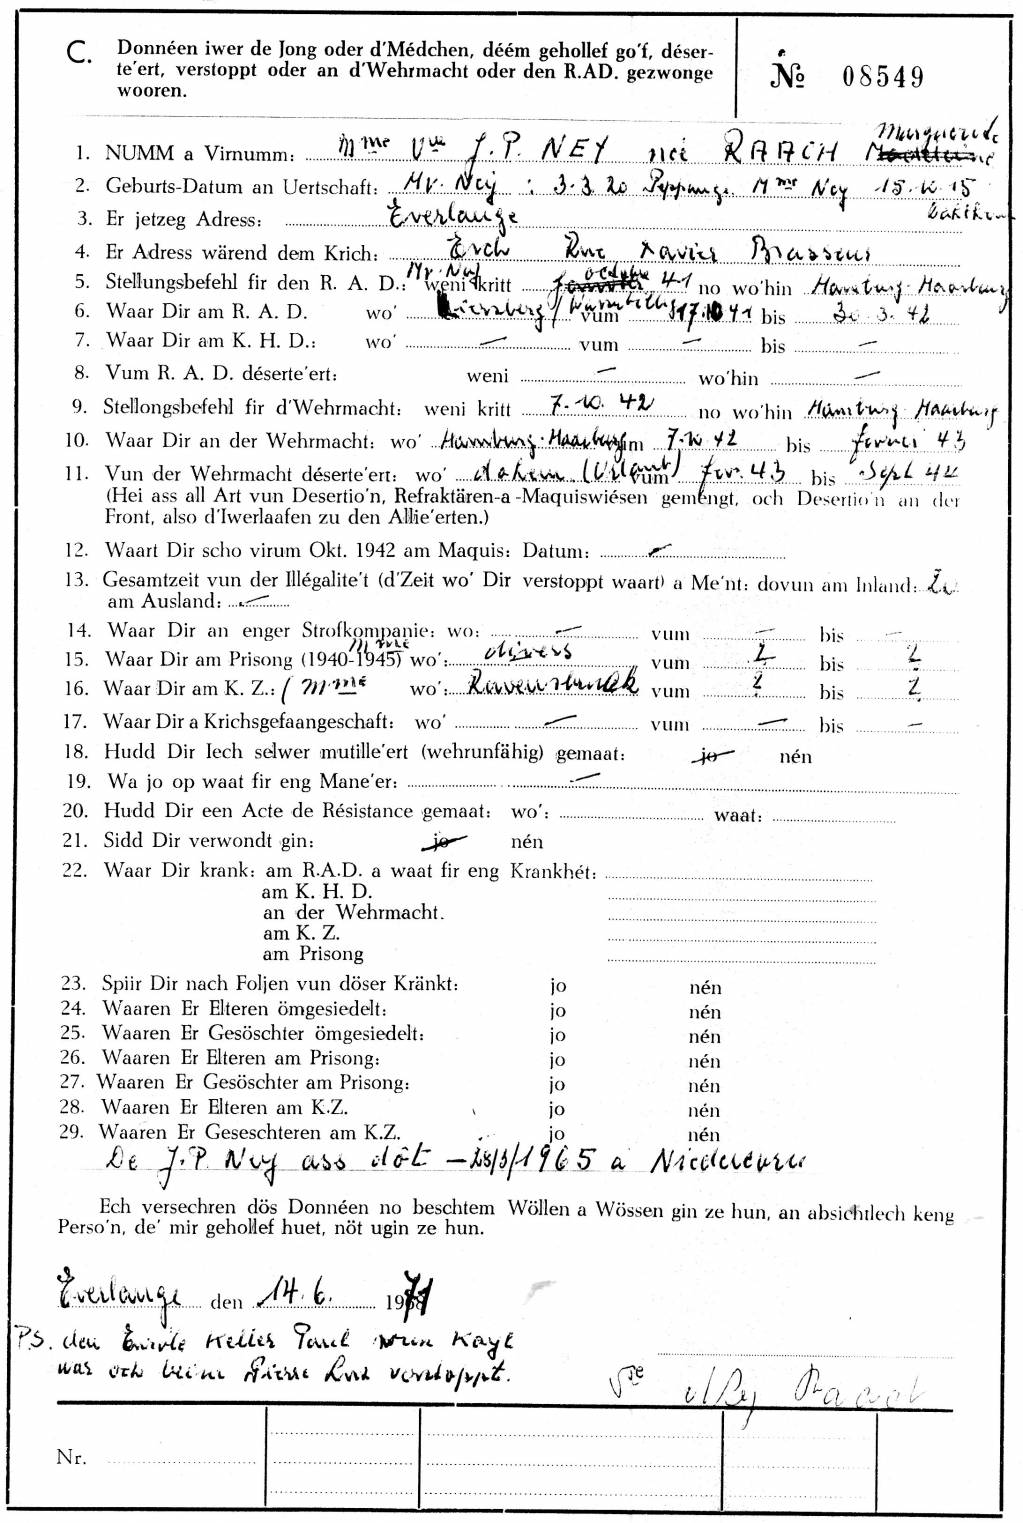 C. Donnéen iwer de Jong oder d'Médchen, déém gehollef go'f, déser-
te'ert, verstoppt oder an d'Wehrmacht oder den R.AD. gezwonge
wooren.
№ 08549
Marguerite
1. NUMM a Virnumm: Mme Vve J.P. NEY née RAACH Madeleine
2. Geburts-Datum an Uertschaft: Mr. Ney : 3.3.20 Peppange Mme Ney 15.10.15
3. Er jetzeg Adress: Everlange
4. Er Adress wärend dem Krich: Esch Rue Xavier Brasseur
5. Stellungsbefehl fir den R. A. D.: Mr. Ney weni kritt octobre 41 no wo'hin Hamburg-Haarburg
6. Waar Dir am R. A. D. wo' vum 17.10.41 bis 30.3.42
7. Waar Dir am K. H. D.: wo' — vum — bis —
8. Vum R. A. D. déserte'ert: weni — wo'hin —
9. Stellongsbefehl fir d'Wehrmacht: weni kritt 7.10.42 no wo'hin Hamburg-Haarburg
10. Waar Dir an der Wehrmacht: wo' Hamburg-Haarburg vum 7.10.42 bis 43
11. Vun der Wehrmacht déserte'ert: wo' dohém (Urlaub) vum 43 bis Sept 44
(Hei ass all Art vun Desertio'n, Refraktären-a-Maquiswiésen gemengt, och Desertio'n an der
Front, also d'Iwerlaafen zu den Allie'erten.)
12. Waart Dir scho virum Okt. 1942 am Maquis: Datum: —
13. Gesamtzeit vun der Illégalite't (d'Zeit wo' Dir verstoppt waart) a Me'nt: dovun am Inland: 20
am Ausland: —
14. Waar Dir an enger Strofkompanie: wo: — vum — bis —
15. Waar Dir am Prisong (1940-1945) Mme wo': divers vum ? bis ?
16. Waar Dir am K. Z.: (Mme wo': Ravensbruck vum ? bis ?
17. Waar Dir a Krichsgefaangeschaft: wo' — vum — bis —
18. Hudd Dir Iech selwer mutille'ert (wehrunfähig) gemaat: jo nén
19. Wa jo op waat fir eng Mane'er: —
20. Hudd Dir een Acte de Résistance gemaat: wo': waat:
21. Sidd Dir verwondt gin: jo nén
22. Waar Dir krank: am R.A.D. a waat fir eng Krankhét:
am K. H. D.
an der Wehrmacht.
am K. Z.
am Prisong
23. Spiir Dir nach Foljen vun döser Kränkt: jo nén
24. Waaren Er Elteren ömgesiedelt: jo nén
25. Waaren Er Gesöschter ömgesiedelt: jo nén
26. Waaren Er Elteren am Prisong: jo nén
27. Waaren Er Gesöschter am Prisong: jo nén
28. Waaren Er Elteren am K.Z. jo nén
29. Waaren Er Geseschteren am K.Z. jo nén
De J.P. Ney ass dôt 1965 a
Ech versechren dös Donnéen no beschtem Wöllen a Wössen gin ze hun, an absichtlech keng
Perso'n, de' mir gehollef huet, nöt ugin ze hun.
Everlange den 14.6. 1971
P.S. den Keller Paul vun Kayl
war och beim Pierre verstoppt.
Vve Ney Raach
Nr.